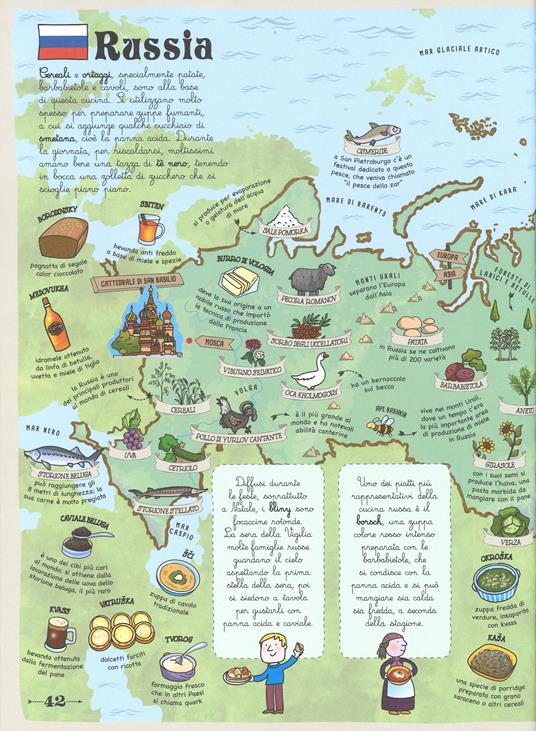 Russia
Cereali e ortaggi, specialmente patate,
barbabietole e cavoli, sono alla base
di questa cucina. Si utilizzano molto
spesso per preparare zuppe fumanti,
a cui si aggiunge qualche cucchiaio di
smetana, cioè la panna acida. Durante
la giornata, per riscaldarsi, moltissimi
amano bere una tazza di tè nero, tenendo
in bocca una zolletta di zucchero che si
scioglie piano piano.
MAR GLACIALE ARTICO
OSMERIDE
a San Pietroburgo c'è un
festival dedicato a questo
pesce, che veniva chiamato
"il pesce dello zar"
MARE DI BARENTS
MARE DI KARA
si produce per evaporazione
o gelatura dell'acqua
di mare
SALE POMORKA
BORODINSKY
pagnotta di segale
color cioccolato
SBITEN
bevanda anti freddo
a base di miele e spezie
EUROPA
ASIA
FORESTE DI
LARICI E BETULLE
CATTEDRALE DI SAN BASILIO
BURRO DI VOLOGDA
deve la sua origine a un
nobile russo che importò
la tecnica di produzione
dalla Francia
PECORA ROMANOV
MONTI URALI
separano l'Europa
dall'Asia
MEDOVUKHA
idromele ottenuto
da linfa di betulla,
uvetta e miele di tiglio
MOSCA
SORBO DEGLI UCCELLATORI
PATATA
in Russia se ne coltivano
più di 200 varietà
VIBURNO SELVATICO
OCA KHOLMOGORY
ha un bernoccolo
sul becco
BARBABIETOLA
ANETO
la Russia è uno
dei principali produttori
al mondo di cereali
CEREALI
VOLGA
POLLO DI YURLOV CANTANTE
è il più grande al
mondo e ha notevoli
abilità canterine
APE BASHKIR
vive nei monti Urali,
dove un tempo c'era
la più importante area
di produzione di miele
in Russia
MAR NERO
UVA
CETRIOLO
GIRASOLE
con i suoi semi si
produce l'halva, una
pasta morbida da
mangiare con il pane
STORIONE BELUGA
può raggiungere gli
8 metri di lunghezza; la
sua carne è molto pregiata
STORIONE STELLATO
MAR
CASPIO
VERZA
CAVIALE BELUGA
è uno dei cibi più cari
al mondo; si ottiene dalla
lavorazione delle uova dello
storione beluga, il più raro
ŠČI
zuppa di cavolo
tradizionale
Diffusi durante
le feste, soprattutto
a Natale, i bliny sono
focaccine rotonde.
La sera della Vigilia
molte famiglie russe
guardano il cielo
aspettando la prima
stella della sera, poi
si siedono a tavola
per gustarli con
panna acida e caviale.
Uno dei piatti più
rappresentativi della
cucina russa è il
borsch, una zuppa
colore rosso intenso
preparata con le
barbabietole, che
si condisce con la
panna acida e si può
mangiare sia calda
sia fredda, a seconda
della stagione.
OKROŠKA
zuppa fredda di
verdure, insaporita
con kvass
KVASS
bevanda ottenuta
dalla fermentazione
del pane
VATRUŠKA
dolcetti farciti
con ricotta
TVOROG
formaggio fresco
che in altri Paesi
si chiama quark
KAŠA
una specie di porridge
preparato con grano
saraceno o altri cereali
42